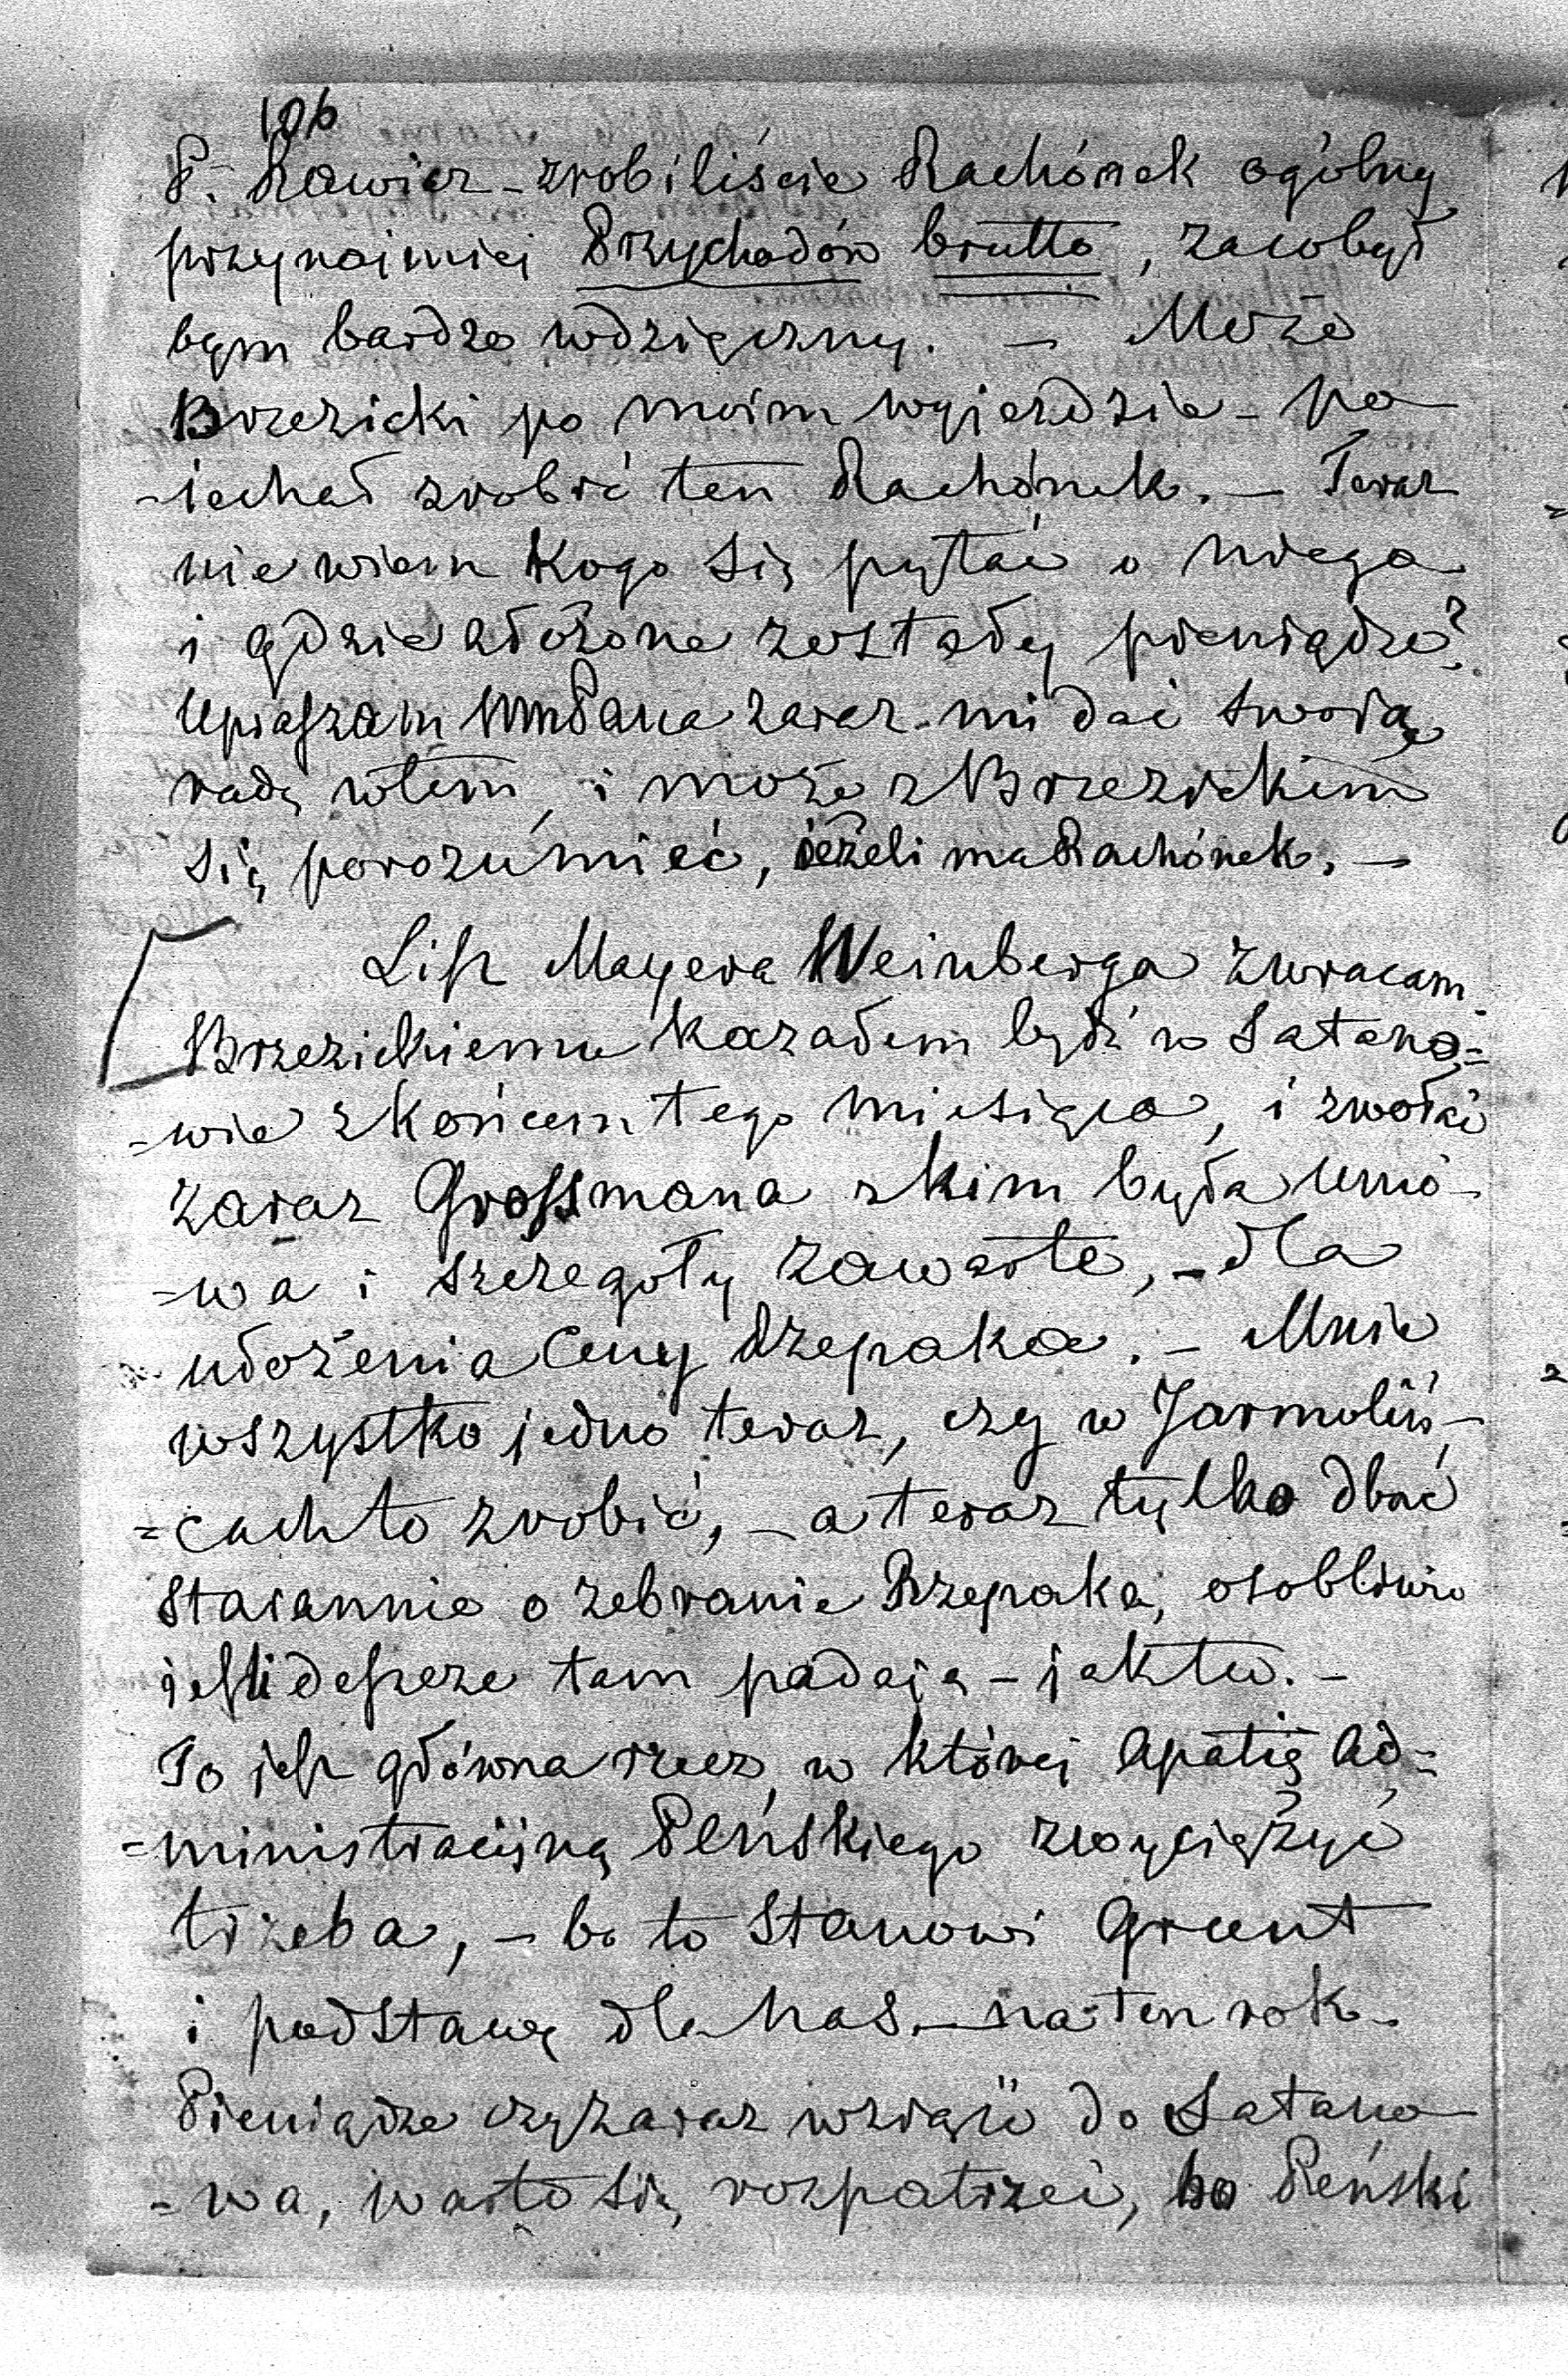 106
P. Rawicz – zrobiliście Rachónek ogólny
przynaimniej Przychodów brutto, zacobył
bym bardzo wdzięczny. – Może
Brzezicki po moim wyjezdzie – po
-iechał zrobić ten Rachónek. – Teraz
nie wiem kogo się pytać o niego
i gdzie złożone zostały pieniądze?
Upraszam WmPana zaraz mi dać swoią
radę wtem, i może z Brzezickim
się porozumieć, ieżeli ma Rachónek. –
List Mayera Weinberga zwracam
Brzezickiemu kazałem bydź w Satano=
-wie z końcem tego miesiąca, i zwołać
zaraz Grossmana z kim była umó-
=wa i szczegóły zawarte, – dla
ułożenia Ceny Rzepaka. – Mnie
wszystko jedno teraz, czy w Jarmoliń-
=cach to zrobić, – a teraz tylko dbać
starannie o zebranie Rzepaka, osobliwie
jeśli deszcze tam padają – jak tu. –
To jest główna rzecz, w której Apatię Ad=
=ministracijną Peńskiego zwyciężyć
trzeba, – bo to Stanowi Grunt
i podstawę dla nas – na ten rok.
Pieniądze czy zaraz wziąść do Satano
=wa, warto się rozpatrzeć, bo Peński